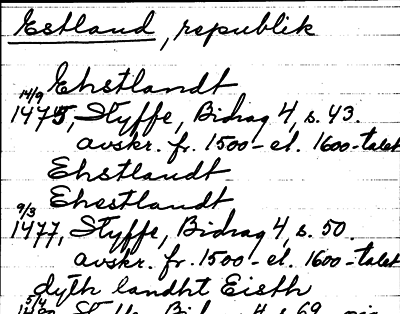 Estland, republik
Ehstlandt
14/9
1475, Styffe, Bidrag 4, s. 43.
avskr. fr. 1500- el. 1600-talet
Ehstlandt
Ehestlandt
9/3
1477, Styffe, Bidrag 4, s. 50.
avskr. fr. 1500- el. 1600-talet
dyth landht Eisth
5/4